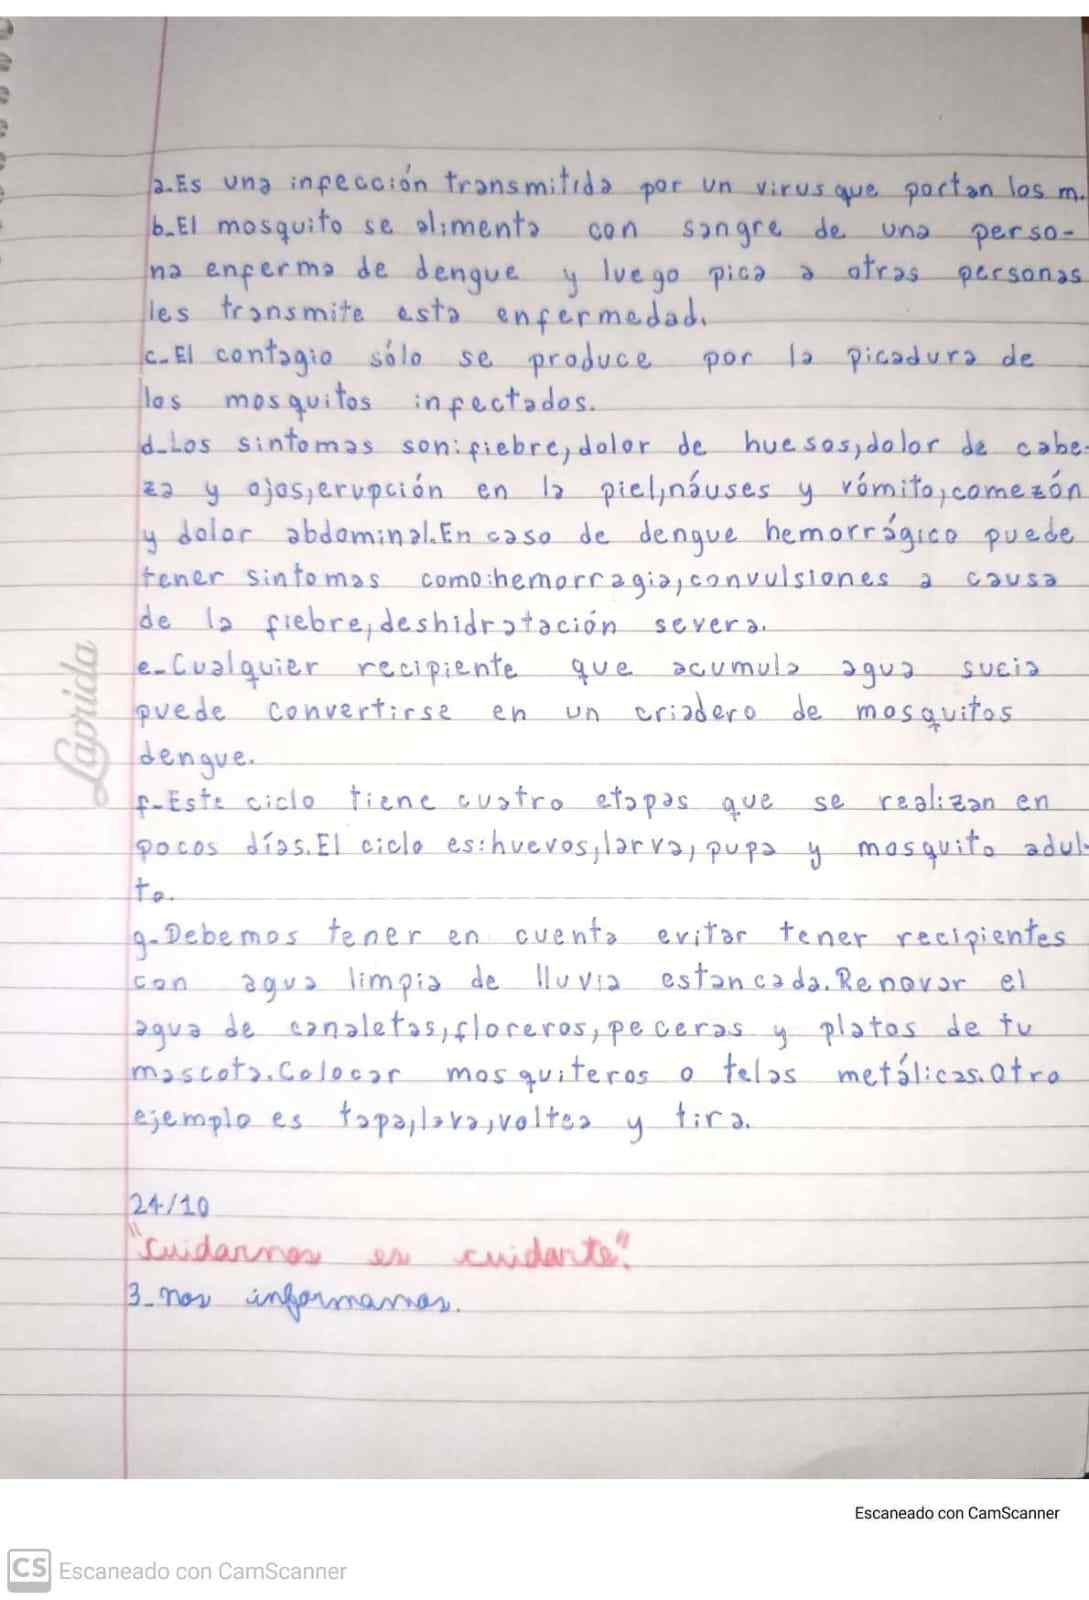 a.Es una infección transmitida por un virus que portan los m.
b.El mosquito se alimenta con sangre de una perso-
na enferma de dengue y luego pica a otras personas
les transmite esta enfermedad.
c.El contagio sólo se produce por la picadura de
los mosquitos infectados.
d.Los sintomas son:fiebre,dolor de huesos,dolor de cabe-
za y ojos,erupción en la piel,náuses y vómito,comezón
y dolor abdominal.En caso de dengue hemorrágico puede
tener sintomas como:hemorragia,convulsiones a causa
de la fiebre,deshidratación severa.
e-Cualquier recipiente que acumula agua sucia
puede convertirse en un criadero de mosquitos
dengue.
f-Este ciclo tiene cuatro etapas que se realizan en
pocos días.El ciclo es:huevos,larva,pupa y mosquito adul-
to.
g-Debemos tener en cuenta evitar tener recipientes
con agua limpia de lluvia estancada.Renovar el
agua de canaletas,floreros,peceras y platos de tu
mascota.Colocar mosquiteros o telas metálicas.Otro
ejemplo es tapa,lava,voltea y tira.
24/10
"Cuidarnos es cuidarte".
3-nos informamos.
Laprida
Escaneado con CamScanner
CS Escaneado con CamScanner